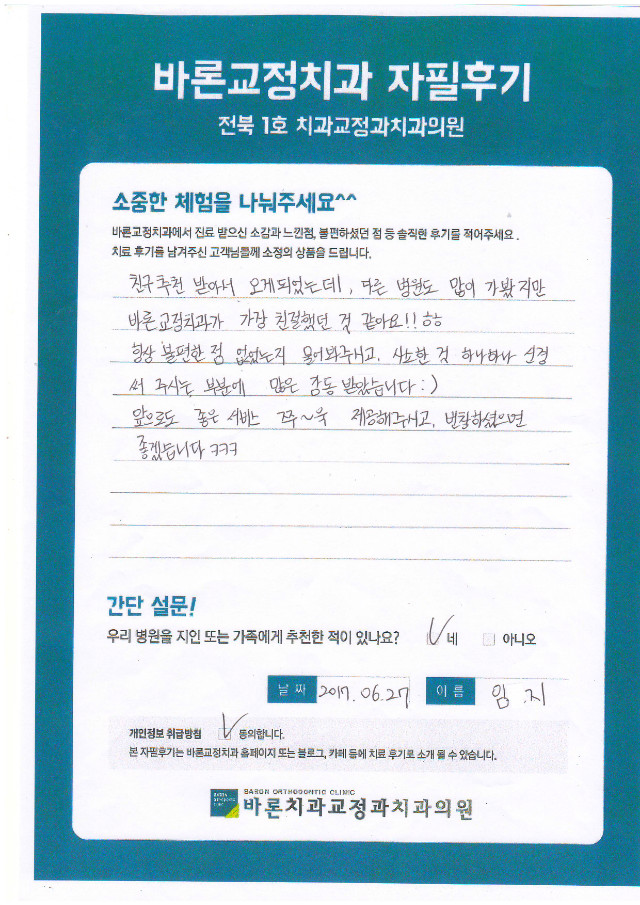 바론교정치과 자필후기
전북 1호 치과교정과치과의원
소중한 체험을 나눠주세요^^
바론교정치과에서 진료 받으신 소감과 느낀점, 불편하셨던 점 등 솔직한 후기를 적어주세요.
치료 후기를 남겨주신 고객님들께 소정의 상품을 드립니다.
친구추천 받아서 오게되었는데, 다른 병원도 많이 가봤지만
바론교정치과가 가장 친절했던 것 같아요!! ㅎㅎ
항상 불편한 점 없었는지 물어봐주시고, 사소한 것 하나하나 신경
써 주시는 부분에 많은 감동 받았습니다 : )
앞으로도 좋은 서비스 쭈~욱 제공해주시고, 번창하셨으면
좋겠습니다 ㅋㅋㅋ
간단 설문!
우리 병원을 지인 또는 가족에게 추천한 적이 있나요? 네 아니오
날짜 2017.06.27 이름 임.지
개인정보 취급방침 동의합니다.
본 자필후기는 바론교정치과 홈페이지 또는 블로그, 카페 등에 치료 후기로 소개 될 수 있습니다.
BARON ORTHODONTIC CLINIC
바론치과교정과치과의원